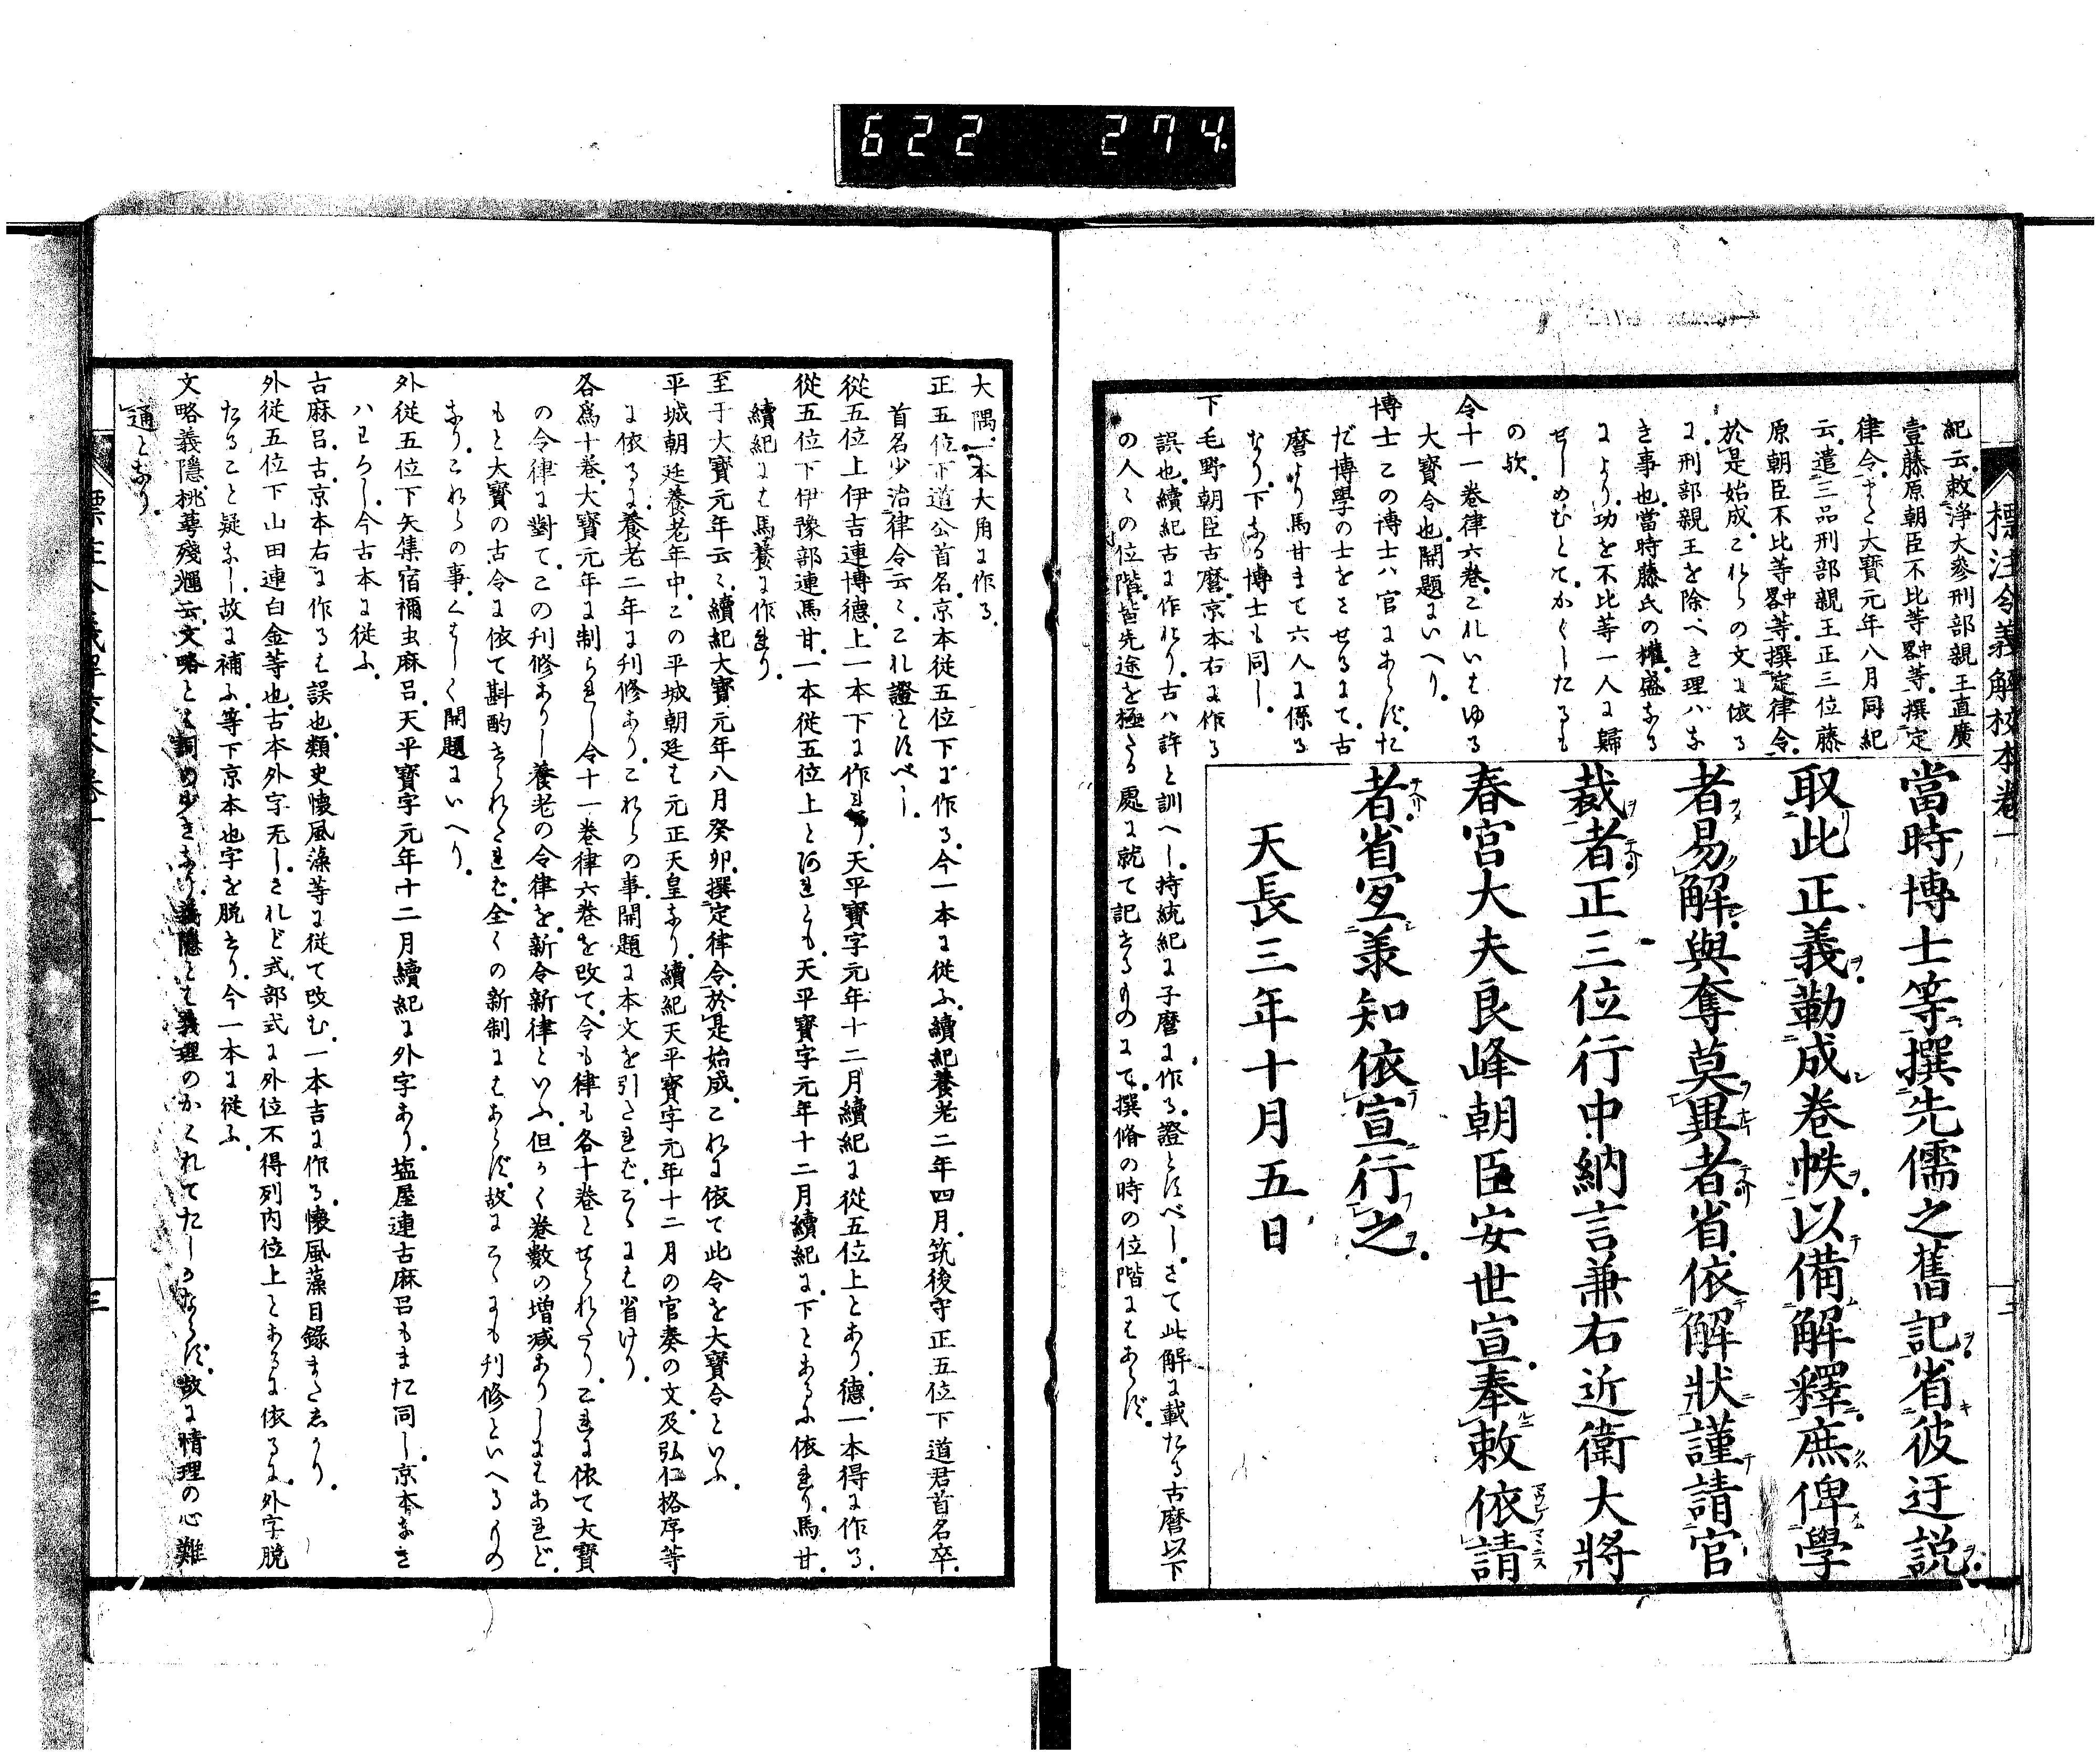 622 274.
標注令義解校本卷一
紀云、敕淨大參刑部親王直廣
壹藤原朝臣不比等畧中等、撰定
律令、また大寶元年八月同紀
云、遣三品刑部親王正三位藤
原朝臣不比等畧中等、撰定律令、
於是始成、これらの文に依る
に、刑部親王を除べき理ハな
き事也、當時藤氏の權盛なる
により、功を不比等一人に歸
せしめむとて、かくしたるも
の歟、
令十一卷律六卷、これいはゆる
大寶令也、開題にいへり、
博士 この博士ハ官にあらず、た
だ博學の士をさせるにて、古
麿より馬甘まで六人に係る
なり、下なる博士も同し、
下毛野朝臣古麿、京本右に作る
誤也、續紀古に作れり、古ハ許と訓へし、持統紀に子麿に作る、證とすべし、さて此解に載たる古麿以下
の人〻の位階、皆先途を極たる處に就て記せるものにて、撰脩の時の位階にはあらず、
當時博士等撰先儒之舊記省彼迂説
取此正義勒成卷帙以備解釋庶俾學
者易解與奪莫異者省依解狀謹請官
裁者正三位行中納言兼右近衛大將
春宮大夫良峰朝臣安世宣奉敕依請
者省宜承知依宣行之
天長三年十月五日
大隅、一本大角に作る、
正五位下道公首名、京本從五位下に作る、今一本に從ふ、續紀養老二年四月、筑後守正五位下道君首名卒、
首名少治律令云〻、これ證とすべし、
從五位上伊吉連博德、上一本下に作れり、天平寶字元年十二月續紀に從五位上とあり、德、一本得に作る、
從五位下伊豫部連馬甘、一本從五位上とあれとも、天平寶字元年十二月續紀に、下とあるに依れり、馬甘、
續紀には馬養に作れり、
至于大寶元年云〻、續紀大寶元年八月癸卯、撰定律令、於是始成、これに依て此令を大寶令といふ、
平城朝廷養老年中、この平城朝廷は元正天皇なり、續紀天平寶字元年十二月の官奏の文、及弘仁格序等
に依るに、養老二年に刋修あり、これらの事、開題に本文を引たれば、こゝには省けり、
各爲十卷、大寶元年に制られし令十一卷律六卷を改て、令も律も各十卷とせられたり、これに依て大寶
の令律に對て、この刋修ありし養老の令律を、新令新律といふ、但かく卷數の増減ありしはあれど、
もと大寶の古令に依て斟酌せられたれば、全くの新制にはあらず、故にこゝにも刋修といへるもの
なり、これらの事、くはしく開題にいへり、
外從五位下矢集宿禰虫麻呂、天平寶字元年十二月續紀に外字あり、塩屋連古麻呂もまた同し、京本なき
ハわろし、今古本に從ふ、
古麻呂、古、京本右に作るは誤也、類史懷風藻等に從て改む、一本吉に作る、懷風藻目録またしかり、
外從五位下山田連白金等也、古本外字无し、されど式部式に外位不得列内位上とあるに依るに、外字脱
たること疑なし、故に補ふ、等下京本也字を脱せり、今一本に從ふ、
文略義隱、桃華殘趣云、文略とは詞の少きなり、義隱とは義理のかくれてたしかならず、故に情理の心難
通となり、
三